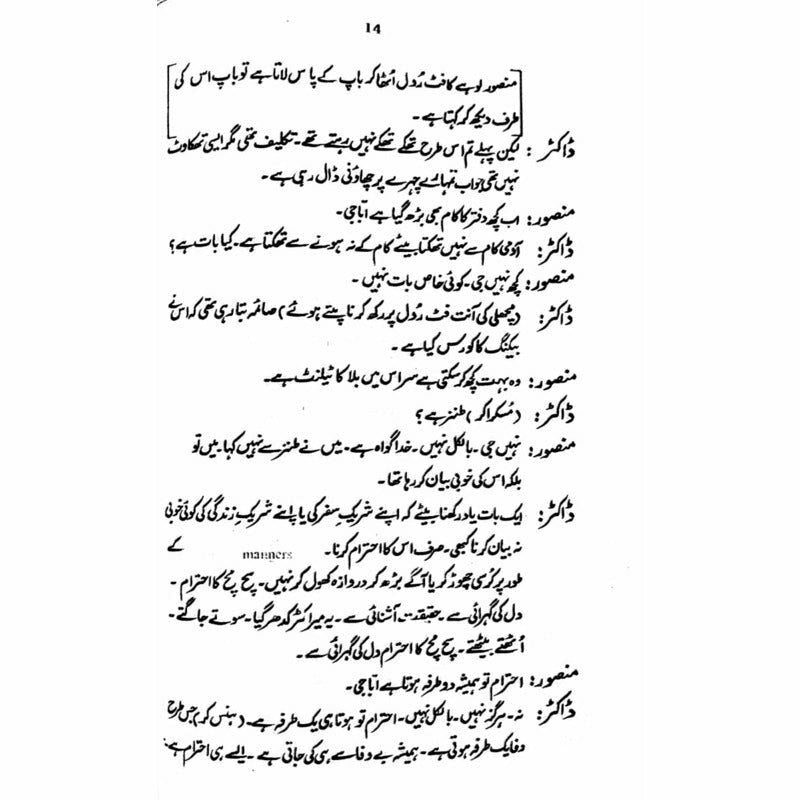 14
منصور لوہے کا فٹ رُول اُٹھا کر باپ کے پاس لاتا ہے تو باپ اس کی
طرف دیکھ کر کہتا ہے۔
ڈاکٹر : لیکن پہلے تم اس طرح تھکے تھکے نہیں رہتے تھے۔ تکلیف تھی مگر ایسی تھکاوٹ
نہیں تھی جو اب تمہارے چہرے پر چھاؤنی ڈال رہی ہے۔
منصور: اب کچھ دفتر کا کام بھی بڑھ گیا ہے ابّا جی۔
ڈاکٹر: آدمی کام سے نہیں تھکتا بیٹے کام کے نہ ہونے سے تھکتا ہے۔ کیا بات ہے؟
منصور: کچھ نہیں جی۔ کوئی خاص بات نہیں۔
ڈاکٹر: (مچھلی کی آنت فٹ رُول پر رکھ کر ناپتے ہوئے) صائمہ بتا رہی تھی کہ اس نے
بیکنگ کا کورس کیا ہے۔
منصور: وہ بہت کچھ کر سکتی ہے سر اس میں بلا کا ٹیلنٹ ہے۔
ڈاکٹر: (مُسکرا کر) طنز ہے؟
منصور: نہیں جی۔ بالکل نہیں۔ خدا گواہ ہے۔ میں نے طنز سے نہیں کہا۔ میں تو
بلکہ اس کی خوبی بیان کر رہا تھا۔
ڈاکٹر: ایک بات یاد رکھنا بیٹے کہ اپنے شریکِ سفر کی یا اپنے شریکِ زندگی کی کوئی خوبی
نہ بیان کرنا کبھی۔ صرف اس کا احترام کرنا۔ manners کے
طور پر کُرسی چھوڑ کر یا آگے بڑھ کر دروازہ کھول کر نہیں۔ سچ مُچ کا احترام۔
دل کی گہرائی سے۔ حقیقت آشنائی سے۔ یہ میرا کٹر کدھر گیا۔ سوتے جاگتے۔
اُٹھتے بیٹھتے۔ سچ مُچ کا احترام دل کی گہرائی سے۔
منصور: احترام تو ہمیشہ دو طرفہ ہوتا ہے ابّا جی۔
ڈاکٹر: نہ۔ ہرگز نہیں۔ بالکل نہیں۔ احترام تو ہوتا ہی یک طرفہ ہے۔ (ہنس کر) جس طرح
وفا یک طرفہ ہوتی ہے۔ ہمیشہ بے وفا سے ہی کی جاتی ہے۔ ایسے ہی احترام ہے۔